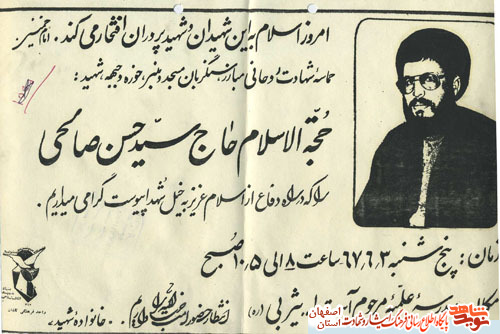 امروز اسلام به این شهیدان و شهید پروران افتخار می کند. امام خمینی
حماسه شهادت روحانی مبارز، سنگربان مسجد و منبر، حوزه و جبهه، شهید:
حجة الاسلام حاج سید حسن صالحی
را که در راه دفاع از اسلام عزیز به خیل شهدا پیوست گرامی میداریم.
زمان: پنج شنبه ۶۷٫۶٫۳ ساعت ۸ الی ۱۰٫۵ صبح
علمیه مرحوم آیت الله یثربی (ره)
انتظار حضور
خانواده شهید
پایگاه اطلاع رسانی فرهنگ ایثار و شهادت استان اصفهان
نوید شاهد